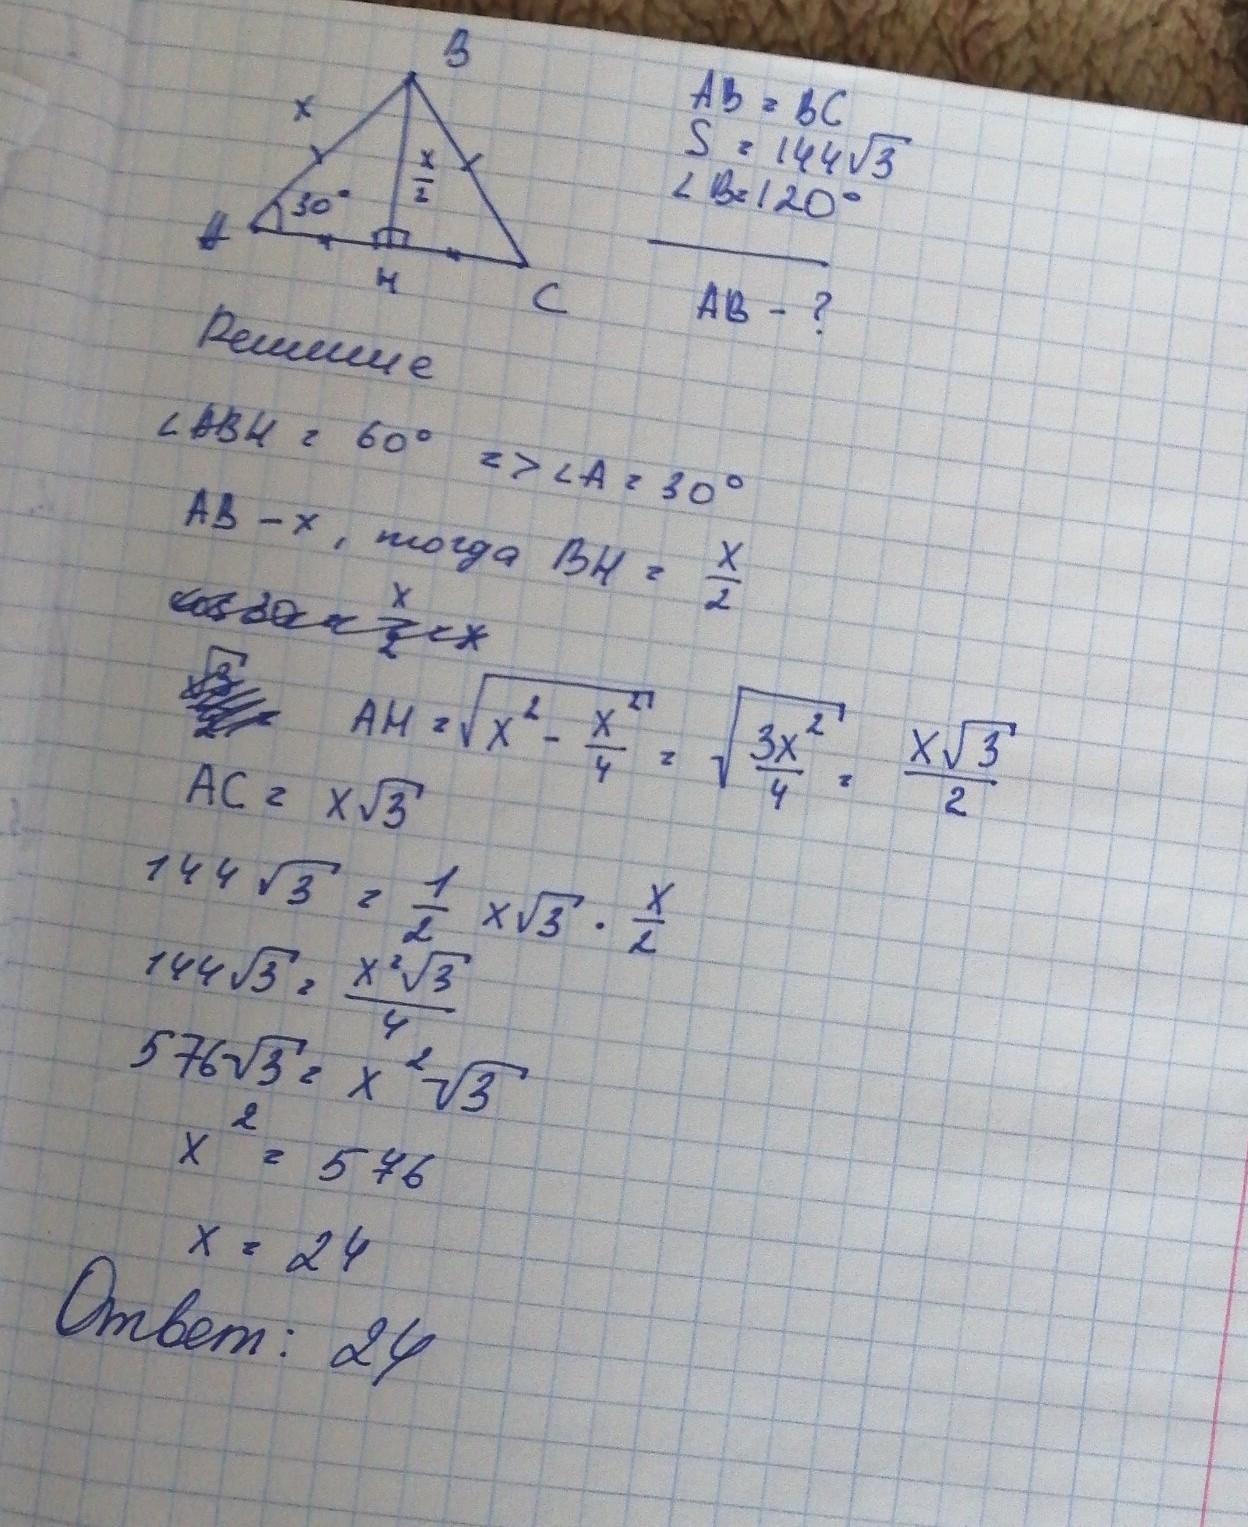 B
x
x/2
30°
A
H
C
AB = BC
S = 144√3
∠B=120°
AB - ?
Решение
∠ABH = 60° => ∠A = 30°
AB - x, тогда BH = x/2
AH = √(x² - x²/4) = √(3x²/4) = x√3/2
AC = x√3
144√3 = 1/2 x√3 · x/2
144√3 = x²√3/4
576√3 = x²√3
x² = 576
x = 24
Ответ: 24